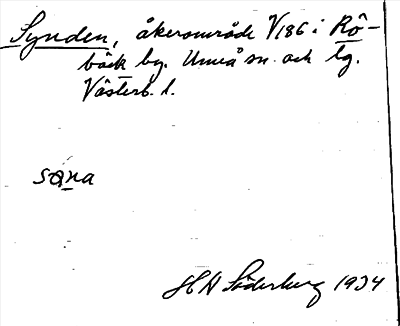 Synden, åkerområde V186 i Rö-
bäck by. Umeå sn. och tg.
Västerb. l.
sɑna
H A Söderberg 1934